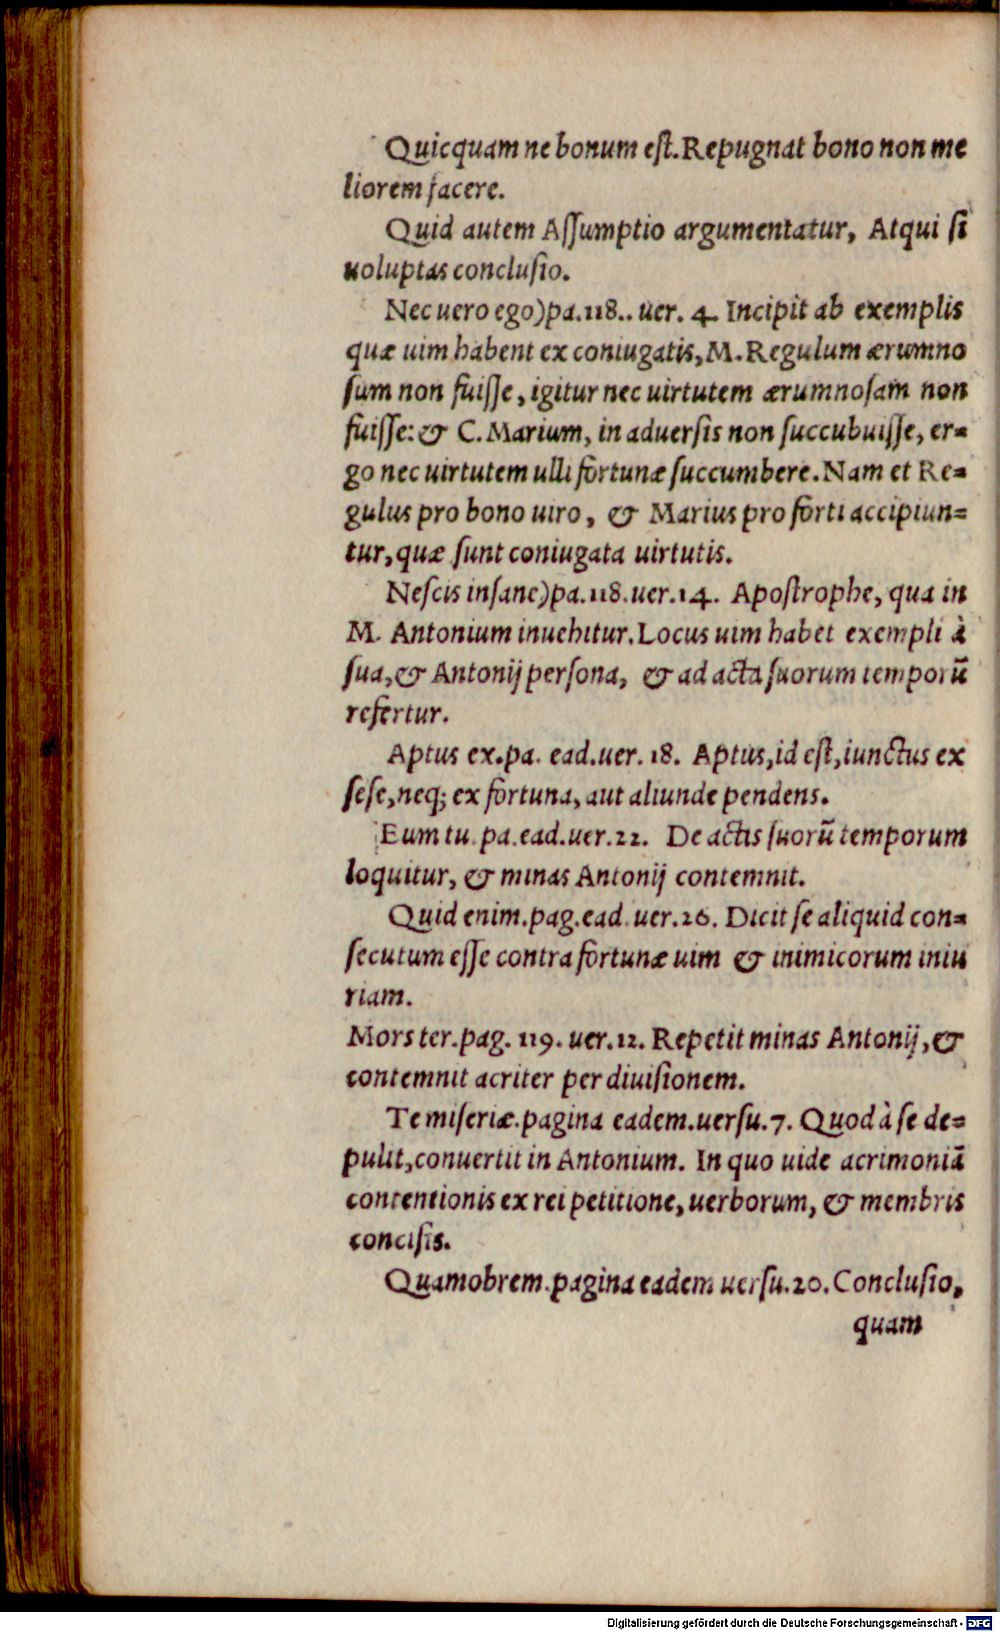 Quicquam ne bonum est. Repugnat bono non me
liorem facere.
Quid autem Assumptio argumentatur, Atqui si
uoluptas conclusio.
Nec uero ego) pa. 118.. uer. 4. Incipit ab exemplis
quæ uim habent ex coniugatis, M. Regulum ærumno
sum non fuisse, igitur nec uirtutem ærumnosam non
fuisse: & C. Marium, in aduersis non succubuisse, er-
go nec uirtutem ulli fortunæ succumbere. Nam et Re-
gulus pro bono uiro, & Marius pro forti accipiun-
tur, quæ sunt coniugata uirtutis.
Nescis insane) pa. 118. uer. 14. Apostrophe, qua in
M. Antonium inuehitur. Locus uim habet exempli à
sua, & Antonij persona, & ad acta suorum temporũ
refertur.
Aptus ex. pa. ead. uer. 18. Aptus, id est, iunctus ex
sese, neq; ex fortuna, aut aliunde pendens.
Eum tu. pa. ead. uer. 22. De actis suorũ temporum
loquitur, & minas Antonij contemnit.
Quid enim. pag. ead. uer. 26. Dicit se aliquid con-
secutum esse contra fortunæ uim & inimicorum iniu
riam.
Mors ter. pag. 119. uer. 12. Repetit minas Antonij, &
contemnit acriter per diuisionem.
Te miseriæ. pagina eadem. uersu. 7. Quod à se de-
pulit, conuertit in Antonium. In quo uide acrimoniã
contentionis ex rei petitione, uerborum, & membris
concisis.
Quamobrem. pagina eadem uersu. 20. Conclusio,
quam
Digitalisierung gefördert durch die Deutsche Forschungsgemeinschaft - DFG